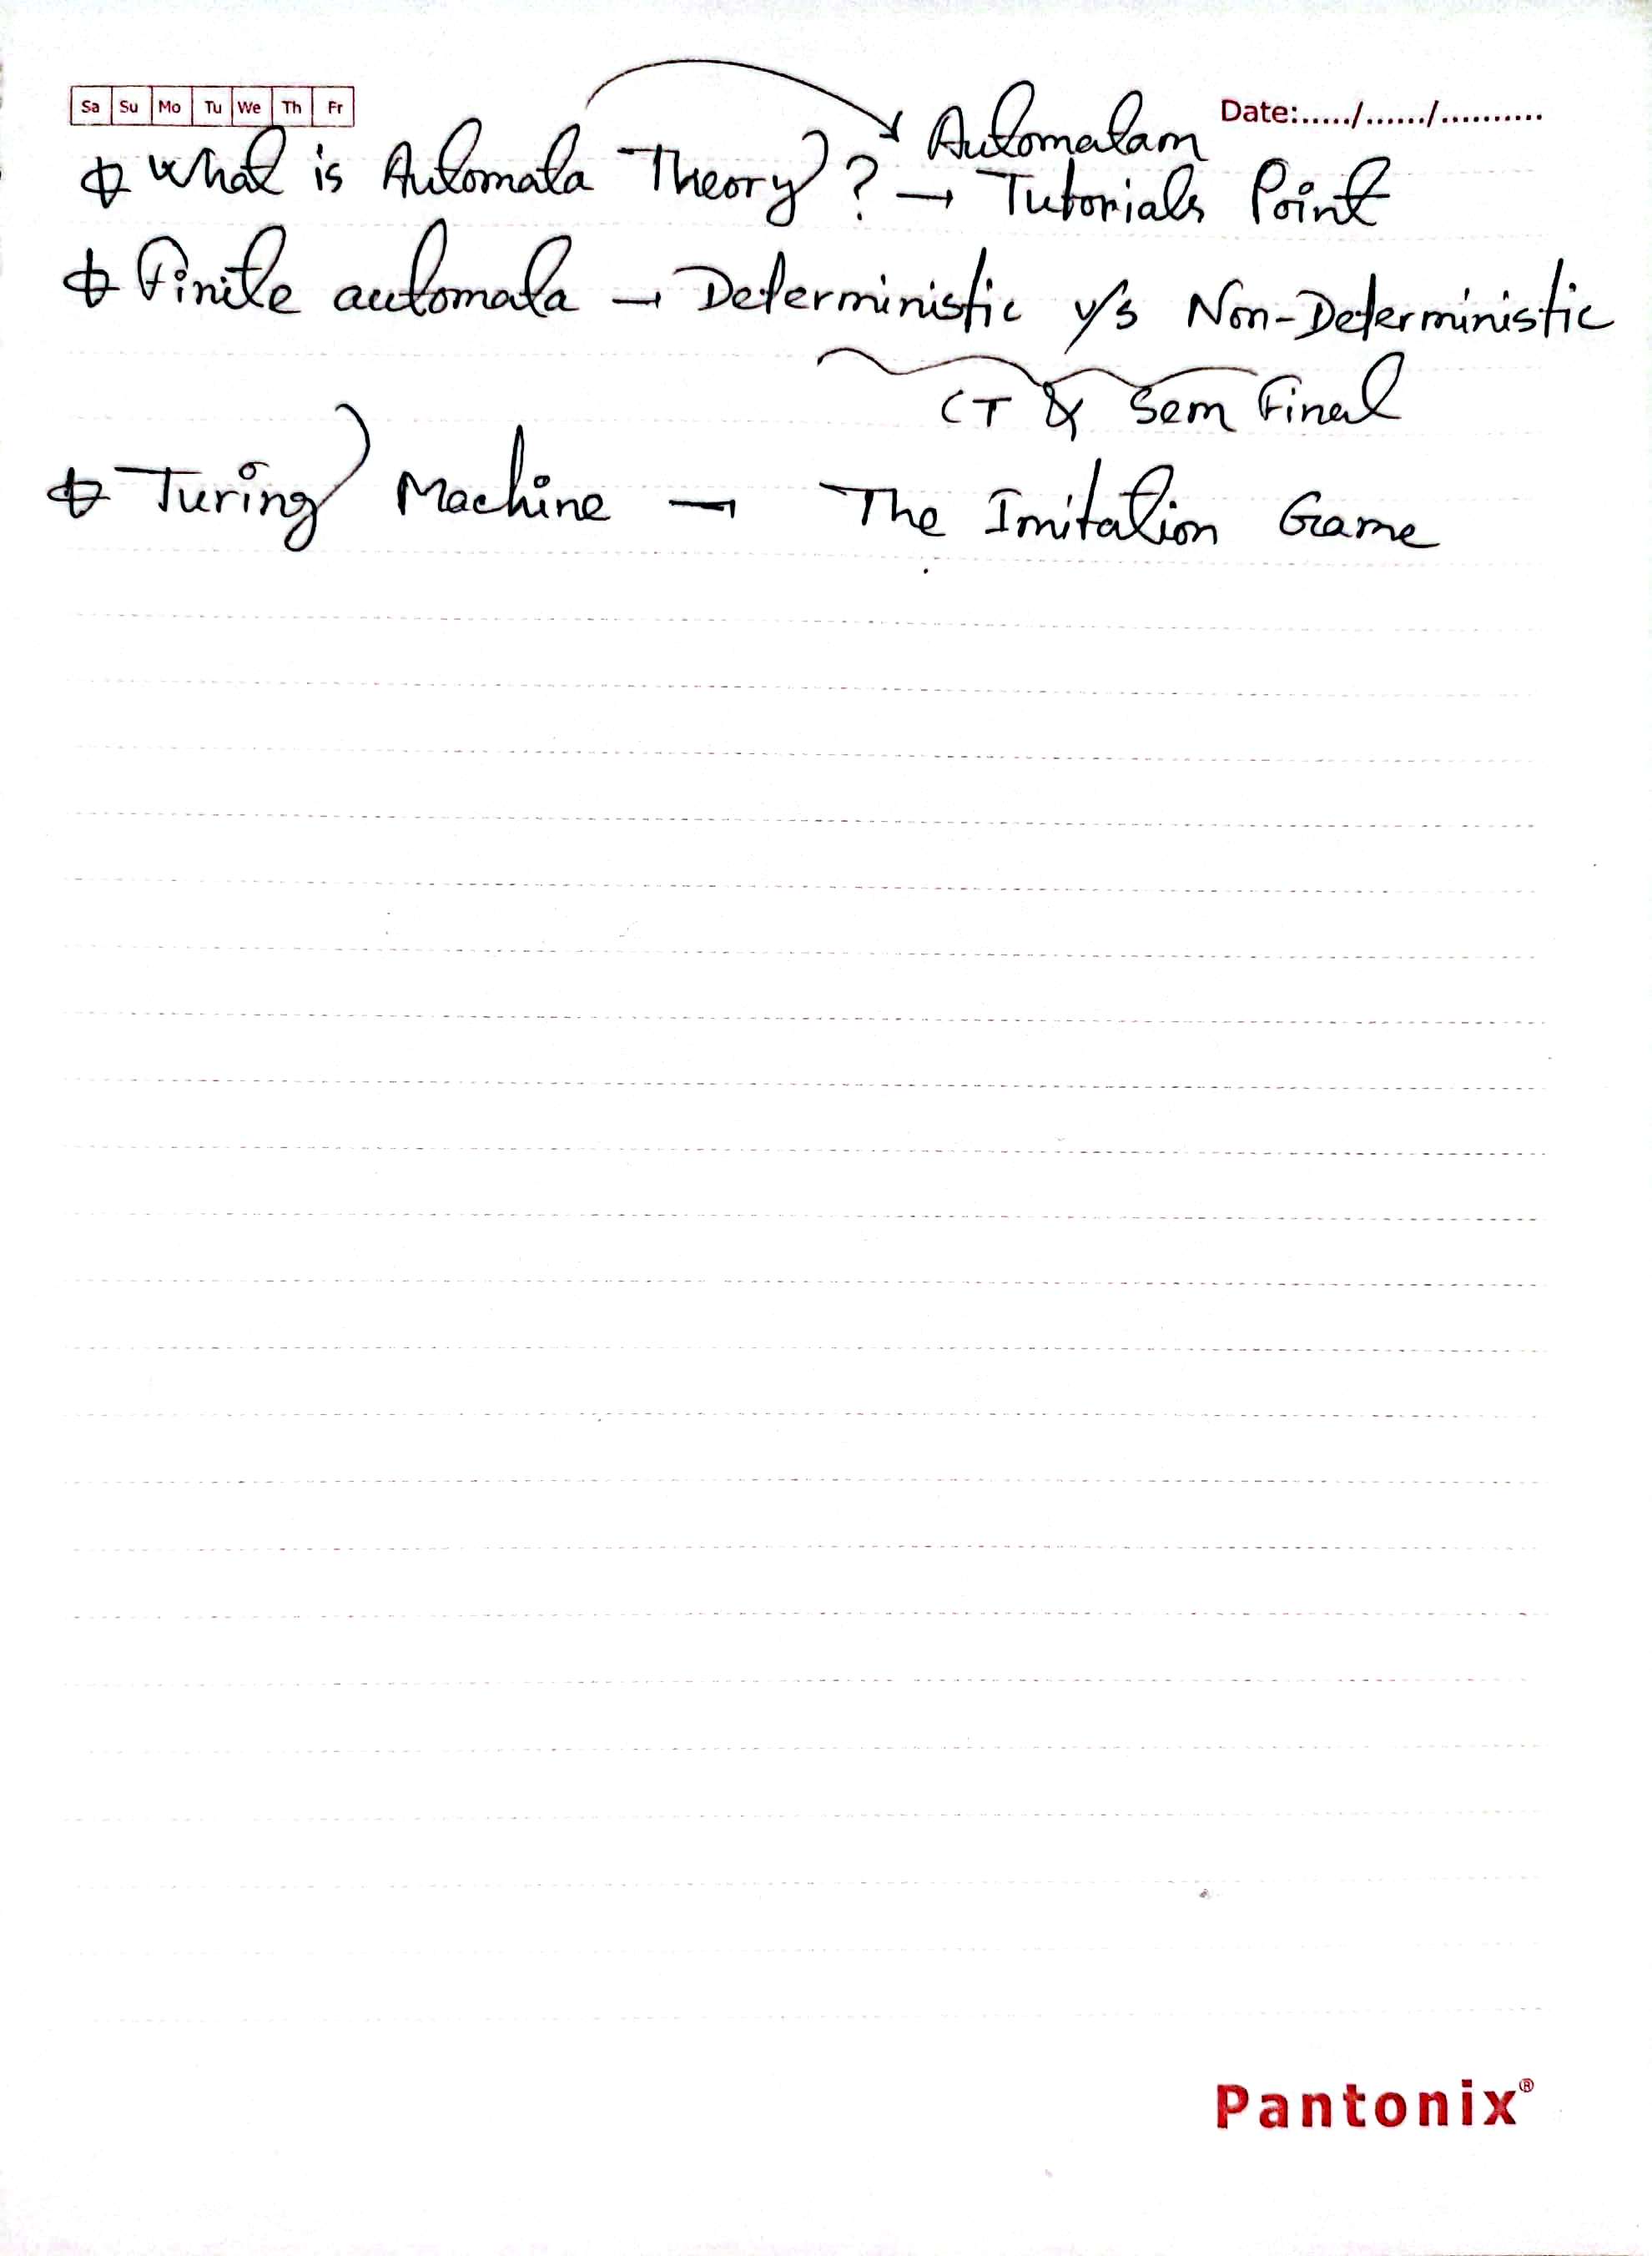 Sa Su Mo Tu We Th Fr
Date:...../....../..........
Automatam
What is Automata Theory? → Tutorials Point
Finite automata → Deterministic v/s Non-Deterministic
CT & Sem Final
Turing Machine → The Imitation Game
Pantonix®